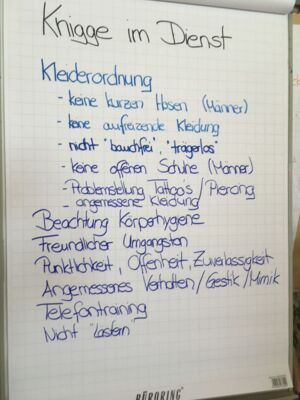 Knigge im Dienst
Kleiderordnung
- keine kurzen Hosen (Männer)
- keine aufreizende Kleidung
- nicht "bauchfrei", "trägerlos"
- keine offenen Schuhe (Männer)
- Problemstellung Tattoo's / Piercing
- angemessene Kleidung
Beachtung Körperhygene
Freundlicher Umgangston
Pünktlichkeit, Offenheit, Zuverlässigkeit
Angemessenes Verhalten / Gestik / Mimik
Telefontraining
Nicht "Lästern"
BÜRORING